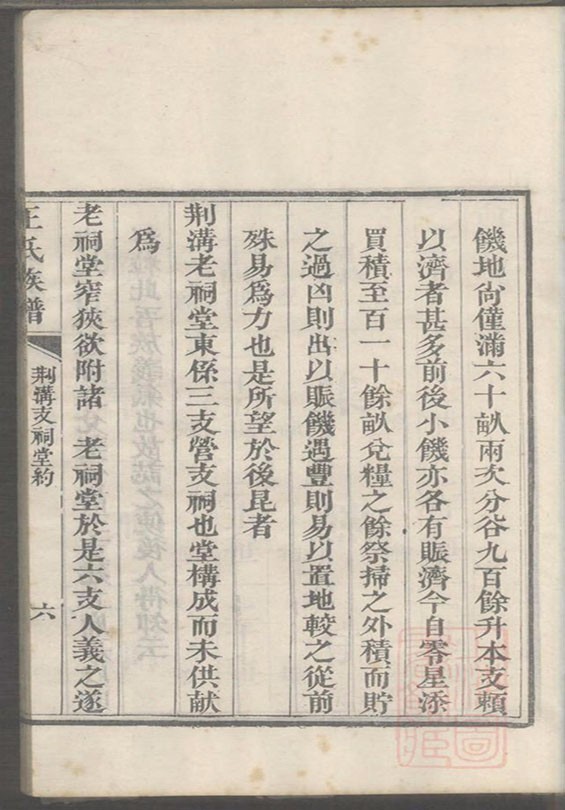 饑地尙僅滿六十畝兩次分谷九百餘升本支賴
以濟者甚多前後小饑亦各有賑濟今自零星添
買積至百一十餘畝兌糧之餘祭掃之外積而貯
之過凶則出以賑饑遇豐則易以置地較之從前
殊易爲力也是所望於後昆者
荆溝老祠堂東係三支營支祠也堂構成而未供献
爲
老祠堂窄狹欲附諸 老祠堂於是六支人義之遂
王氏族譜
荆溝支祠堂約
六